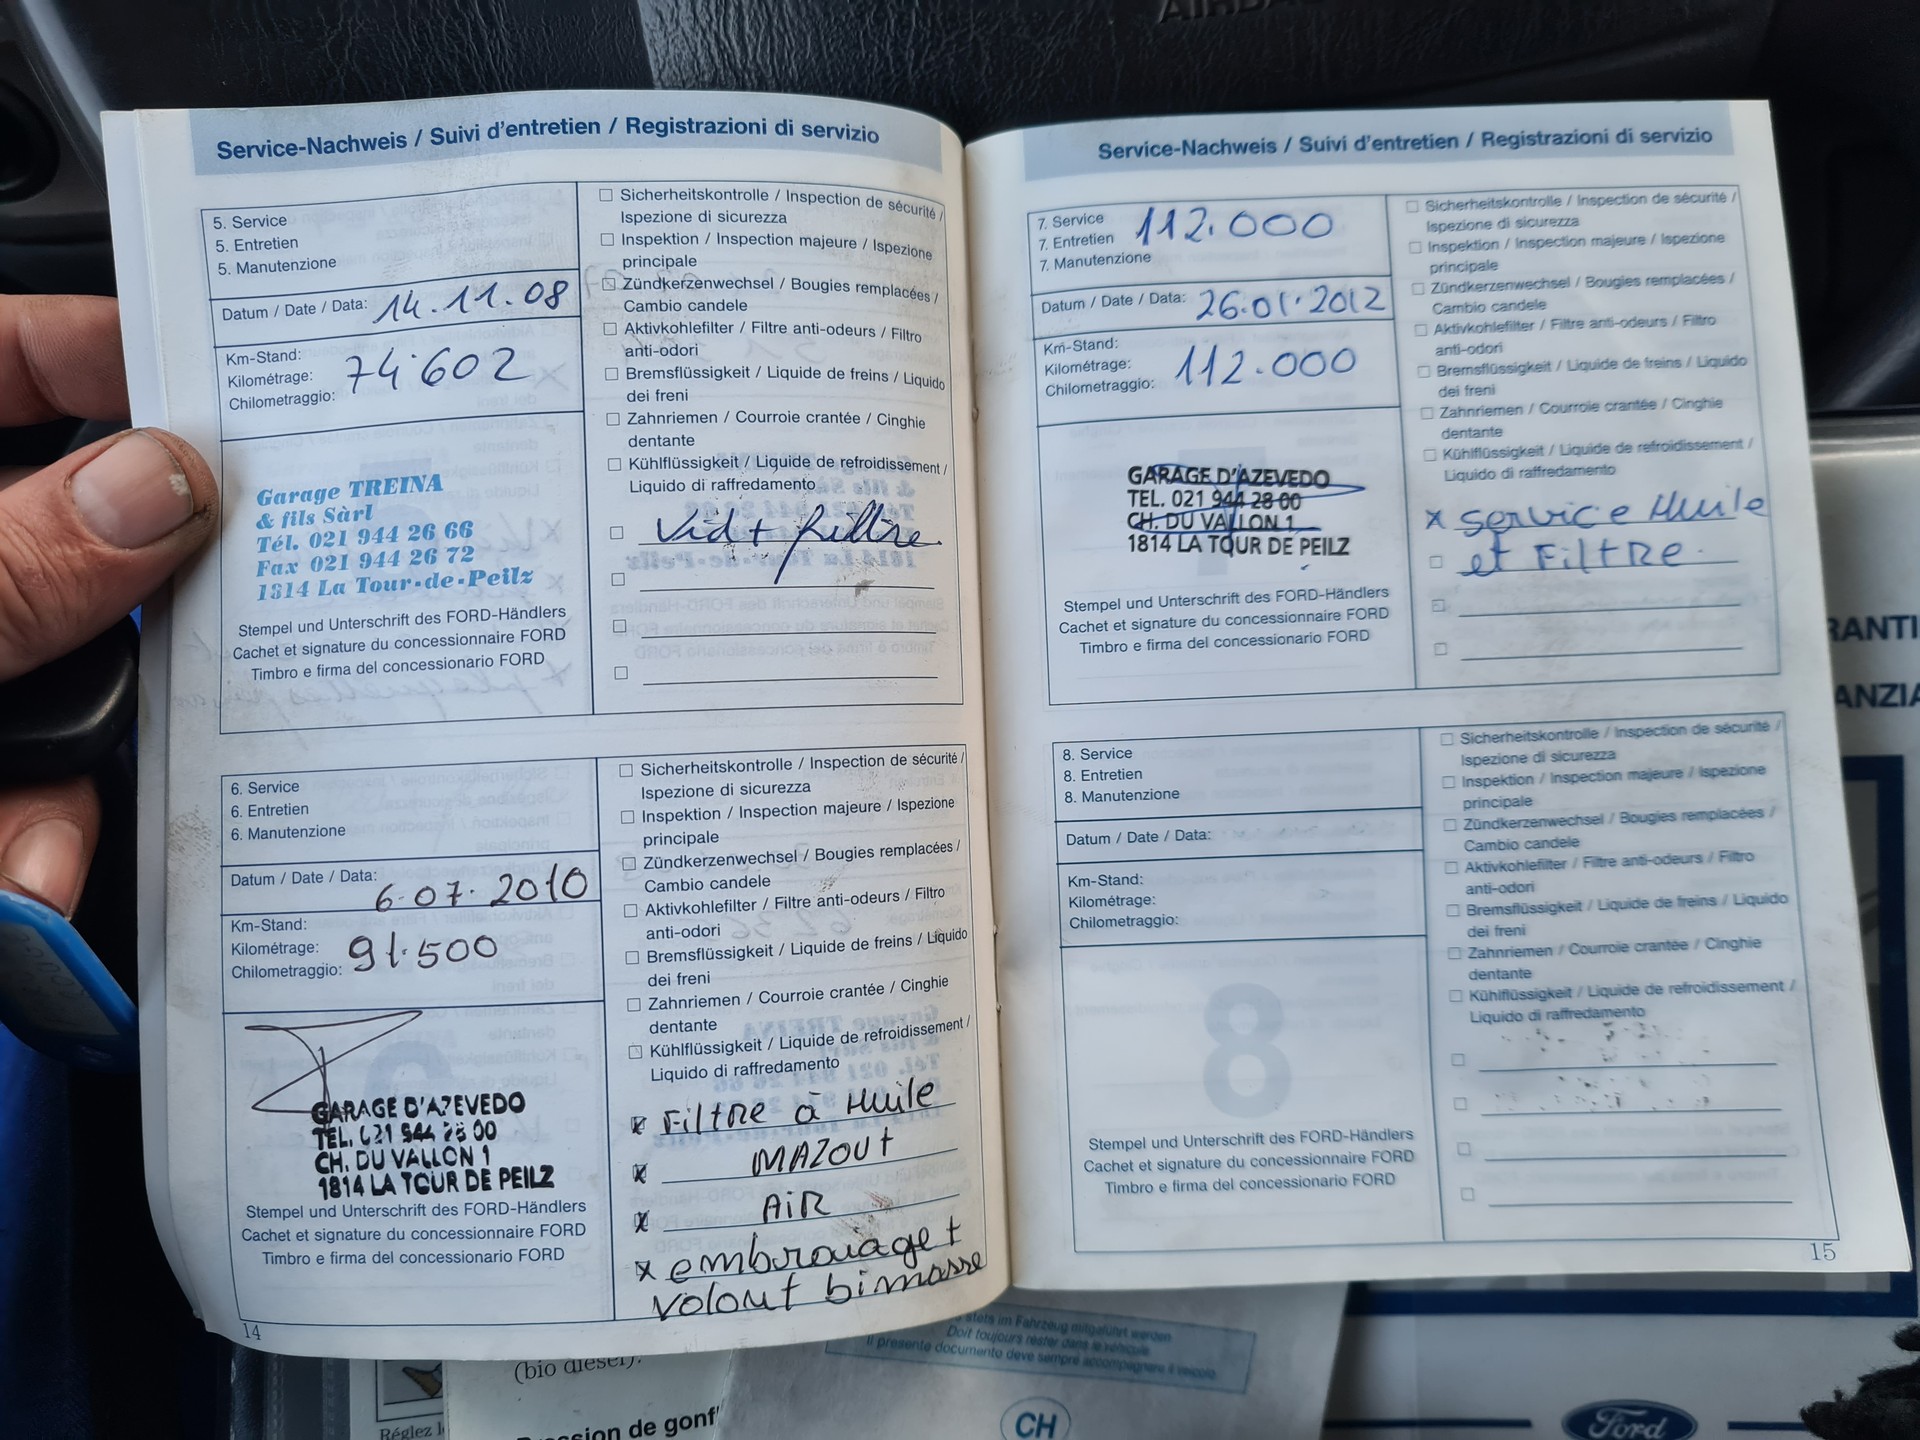 AIRBAG
Service-Nachweis / Suivi d'entretien / Registrazioni di servizio
5. Service
5. Entretien
5. Manutenzione
Datum / Date / Data: 14.11.08
Km-Stand:
Kilométrage: 74'602
Chilometraggio:
Garage TREINA
& fils Sàrl
Tél. 021 944 26 66
Fax 021 944 26 72
1814 La Tour-de-Peilz
Stempel und Unterschrift des FORD-Händlers
Cachet et signature du concessionnaire FORD
Timbro e firma del concessionario FORD
Sicherheitskontrolle / Inspection de sécurité /
Ispezione di sicurezza
Inspektion / Inspection majeure / Ispezione
principale
Zündkerzenwechsel / Bougies remplacées /
Cambio candele
Aktivkohlefilter / Filtre anti-odeurs / Filtro
anti-odori
Bremsflüssigkeit / Liquide de freins / Liquido
dei freni
Zahnriemen / Courroie crantée / Cinghie
dentante
Kühlflüssigkeit / Liquide de refroidissement /
Liquido di raffredamento
Vid + filtre
6. Service
6. Entretien
6. Manutenzione
Datum / Date / Data: 6.07.2010
Km-Stand:
Kilométrage: 91.500
Chilometraggio:
GARAGE D'AZEVEDO
TEL. 021 944 28 00
CH. DU VALLON 1
1814 LA TOUR DE PEILZ
Stempel und Unterschrift des FORD-Händlers
Cachet et signature du concessionnaire FORD
Timbro e firma del concessionario FORD
Sicherheitskontrolle / Inspection de sécurité /
Ispezione di sicurezza
Inspektion / Inspection majeure / Ispezione
principale
Zündkerzenwechsel / Bougies remplacées /
Cambio candele
Aktivkohlefilter / Filtre anti-odeurs / Filtro
anti-odori
Bremsflüssigkeit / Liquide de freins / Liquido
dei freni
Zahnriemen / Courroie crantée / Cinghie
dentante
Kühlflüssigkeit / Liquide de refroidissement /
Liquido di raffredamento
x Filtre à Huile
x MAZOUt
x AiR
x embrouage +
volout bimasse
14
Service-Nachweis / Suivi d'entretien / Registrazioni di servizio
7. Service
7. Entretien 112.000
7. Manutenzione
Datum / Date / Data: 26.01.2012
Km-Stand:
Kilométrage: 112.000
Chilometraggio:
GARAGE D'AZEVEDO
TEL. 021 944 28 00
CH. DU VALLON 1
1814 LA TOUR DE PEILZ
Stempel und Unterschrift des FORD-Händlers
Cachet et signature du concessionnaire FORD
Timbro e firma del concessionario FORD
Sicherheitskontrolle / Inspection de sécurité /
Ispezione di sicurezza
Inspektion / Inspection majeure / Ispezione
principale
Zündkerzenwechsel / Bougies remplacées /
Cambio candele
Aktivkohlefilter / Filtre anti-odeurs / Filtro
anti-odori
Bremsflüssigkeit / Liquide de freins / Liquido
dei freni
Zahnriemen / Courroie crantée / Cinghie
dentante
Kühlflüssigkeit / Liquide de refroidissement /
Liquido di raffredamento
x service Huile
et FiltRe.
8. Service
8. Entretien
8. Manutenzione
Datum / Date / Data:
Km-Stand:
Kilométrage:
Chilometraggio:
8
Stempel und Unterschrift des FORD-Händlers
Cachet et signature du concessionnaire FORD
Timbro e firma del concessionario FORD
Sicherheitskontrolle / Inspection de sécurité /
Ispezione di sicurezza
Inspektion / Inspection majeure / Ispezione
principale
Zündkerzenwechsel / Bougies remplacées /
Cambio candele
Aktivkohlefilter / Filtre anti-odeurs / Filtro
anti-odori
Bremsflüssigkeit / Liquide de freins / Liquido
dei freni
Zahnriemen / Courroie crantée / Cinghie
dentante
Kühlflüssigkeit / Liquide de refroidissement /
Liquido di raffredamento
15
RANTI
ANZIA
stets im Fahrzeug mitgeführt werden
Doit toujours rester dans le véhicule
Il presente documento deve sempre accompagnare il veicolo
(bio diesel).
ession de gonf
Réglez l
CH
Ford